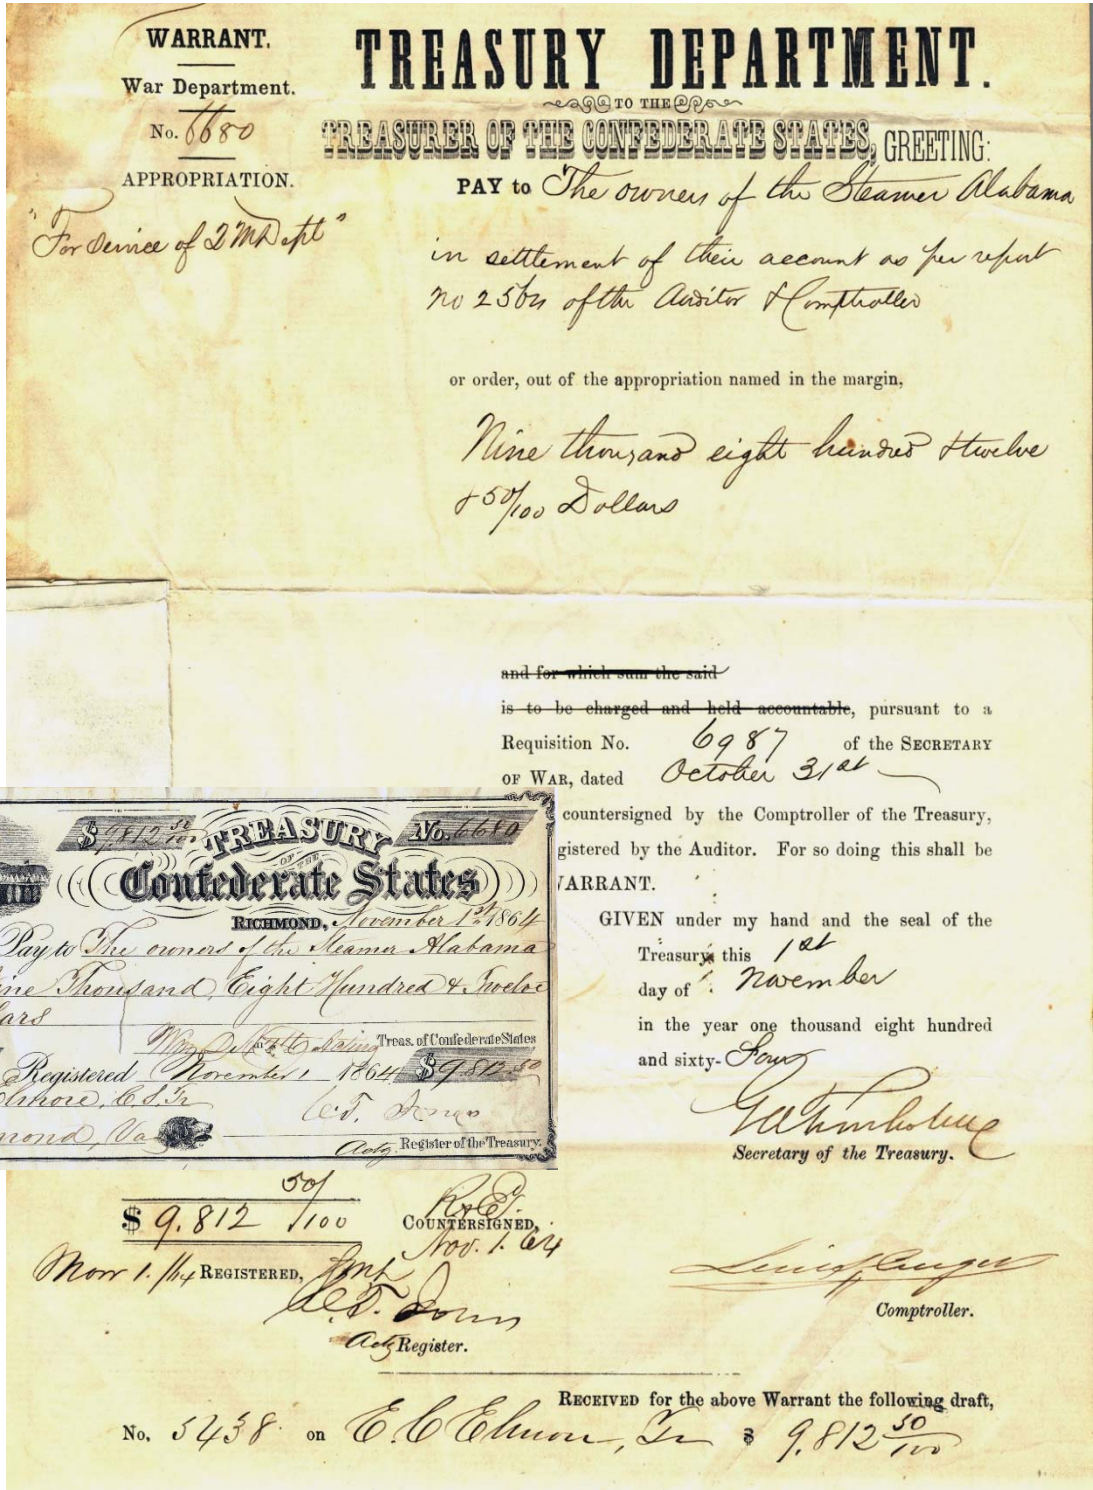 WARRANT.
War Department.
No. 6680
APPROPRIATION.
"For Service of 2 M Dept"
TREASURY DEPARTMENT.
TO THE
TREASURER OF THE CONFEDERATE STATES, GREETING:
PAY to The owners of the Steamer Alabama
in settlement of their account as per report
no of the Auditor & Comptroller
or order, out of the appropriation named in the margin,
Nine thousand eight hundred & twelve
& 50/100 Dollars
and for which sum the said
is to be charged and held accountable, pursuant to a
Requisition No. 6987 of the SECRETARY
OF WAR, dated October 31st
countersigned by the Comptroller of the Treasury,
gistered by the Auditor. For so doing this shall be
WARRANT.
GIVEN under my hand and the seal of the
Treasury this 1st
day of November
in the year one thousand eight hundred
and sixty-Four
Secretary of the Treasury.
$9812 50/100 TREASURY No. 6680
OF THE
Confederate States
RICHMOND, November 1st 1864
Pay to The owners of the Steamer Alabama
ine Thousand Eight Hundred & Twelve
lars
Treas. of Confederate States
Registered November 1 1864 $9,812.50
elmore, C.S. Tr C.T. Jones
mond, Va Actg Register of the Treasury.
$ 9.812 50/100
COUNTERSIGNED,
Nov. 1. 64
Nov 1. /64 REGISTERED,
C.T. Jones
Actg Register.
Comptroller.
RECEIVED for the above Warrant the following draft,
No. 5438 on E. C. Elmore, Tr $ 9.812 50/100